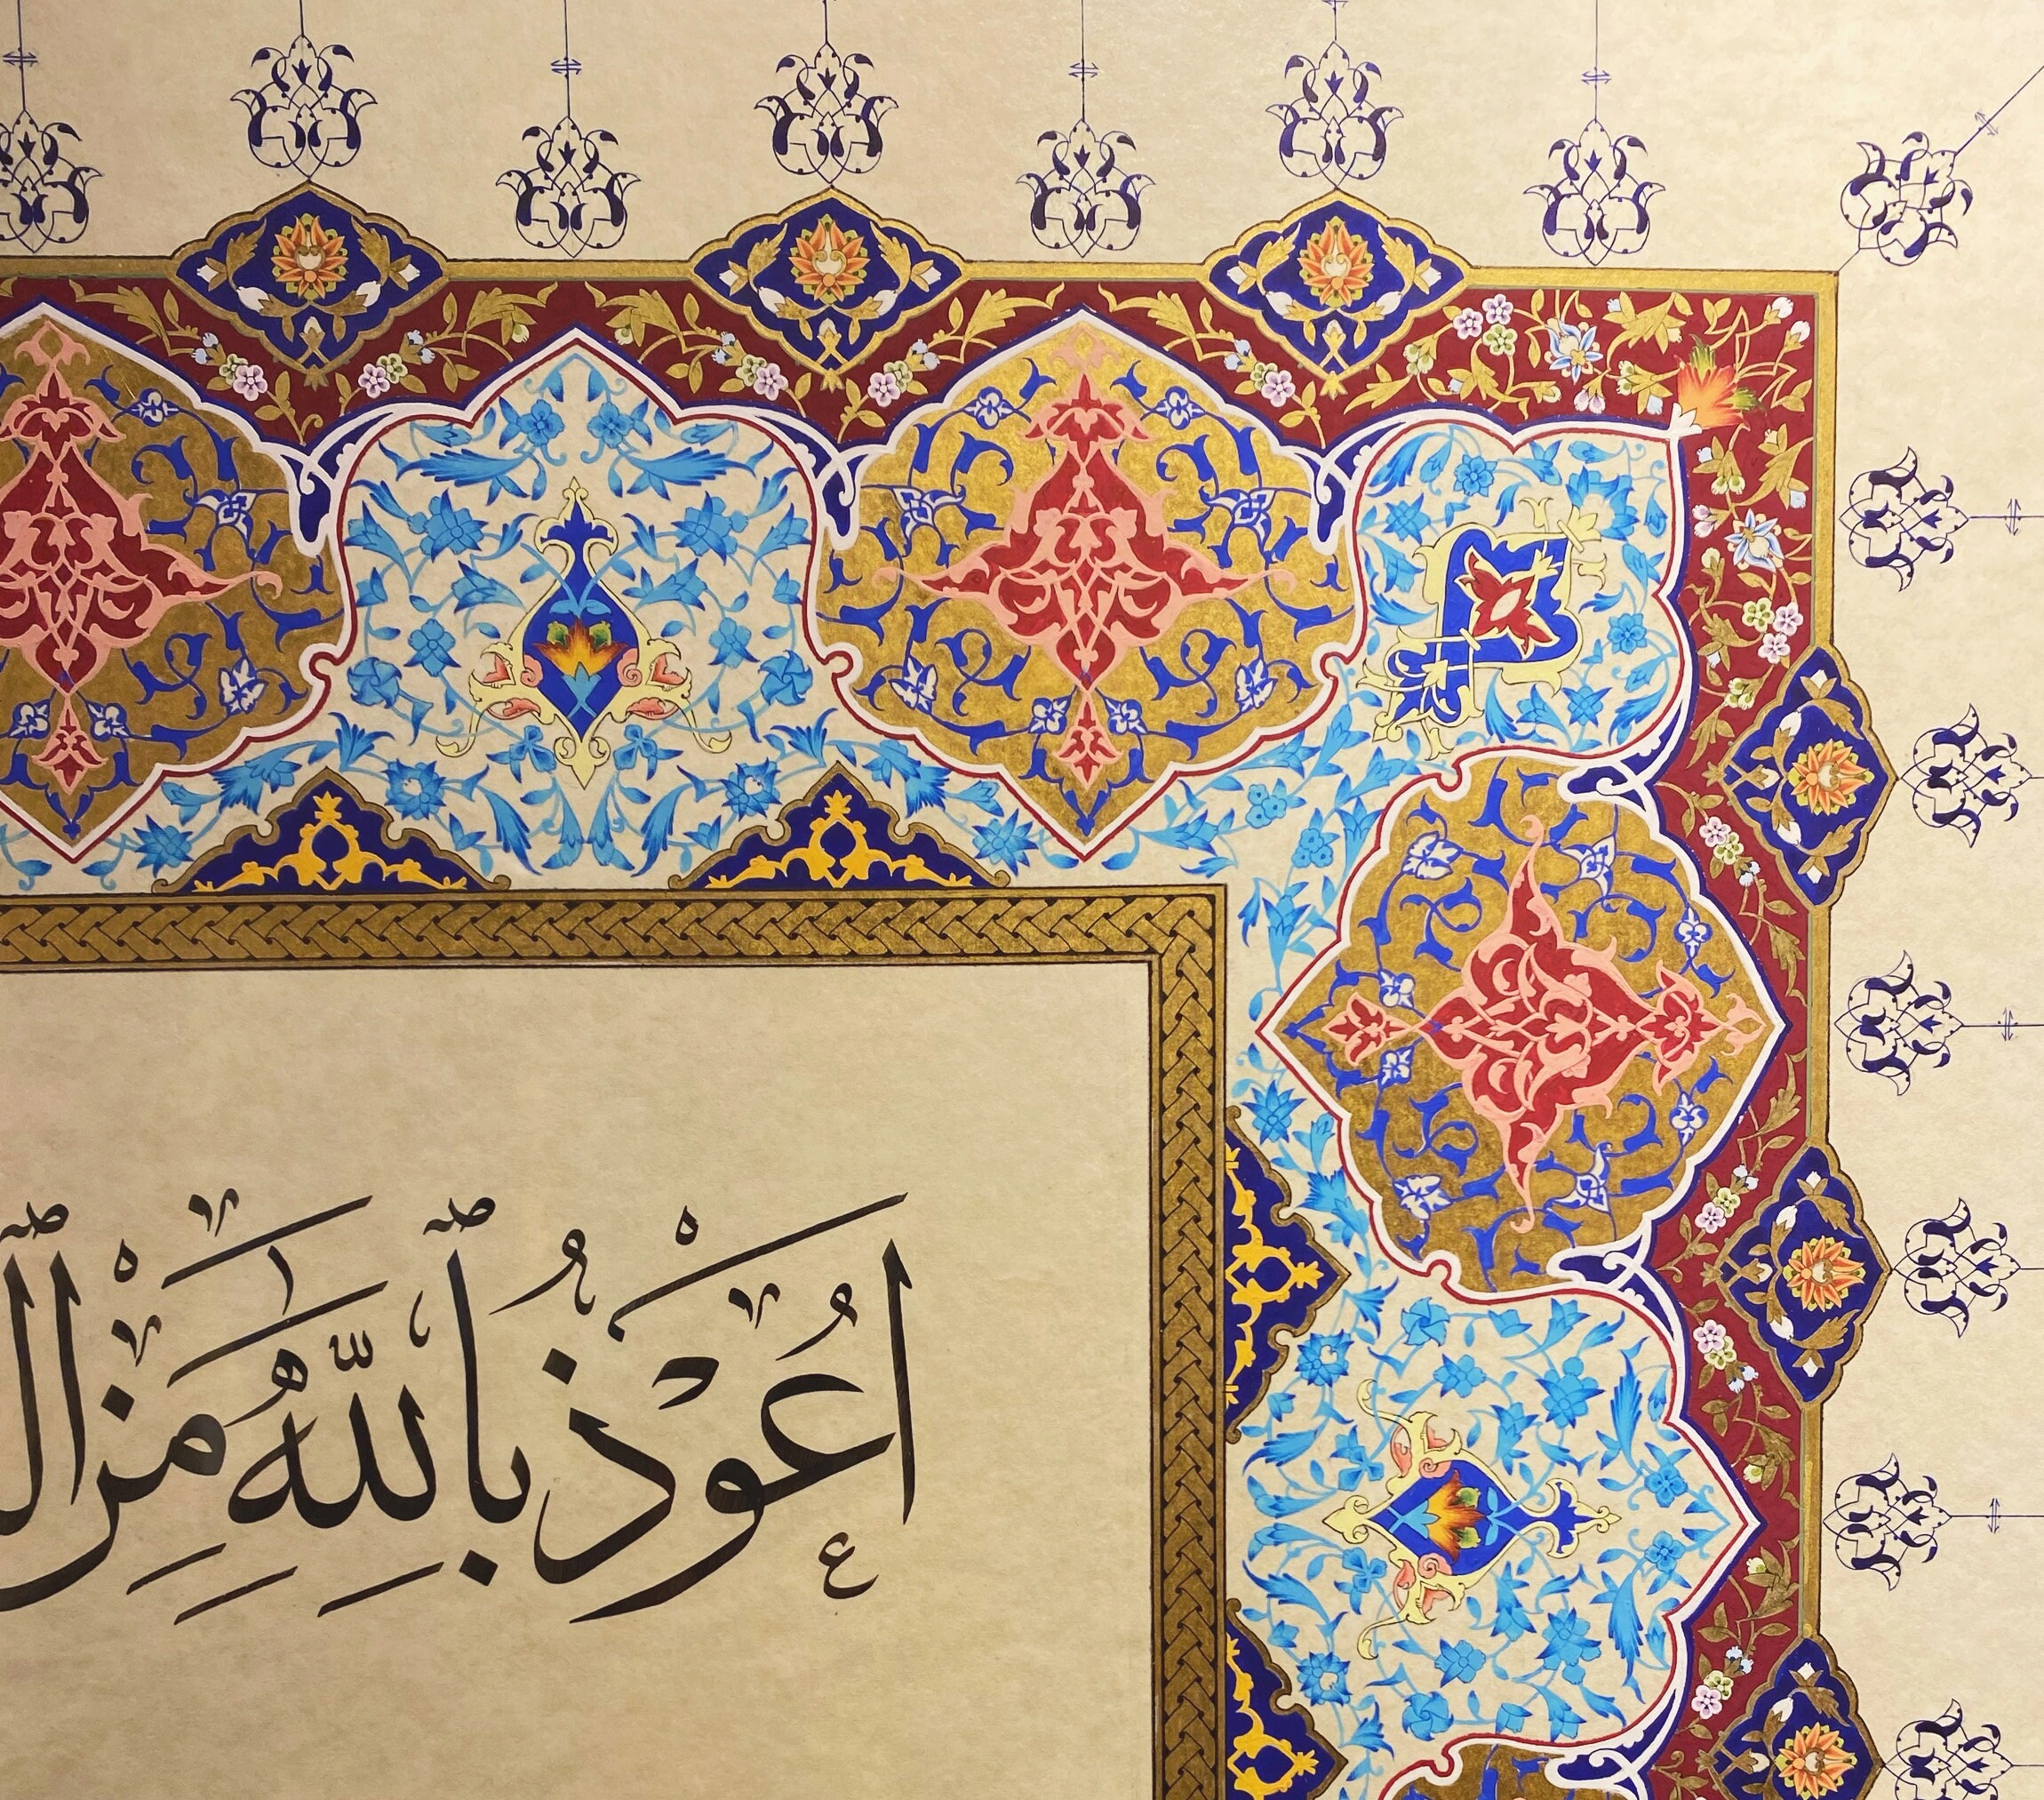 اَعُوْذُ بِاللّٰهِ مِنَ ال